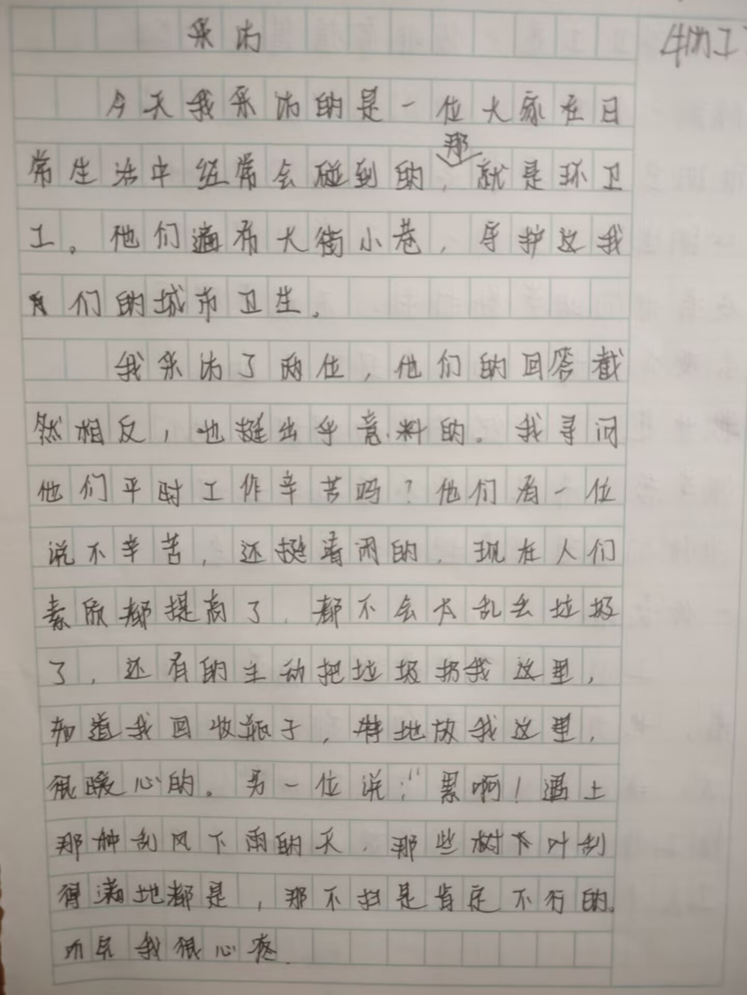 采访
今天我采访的是一位大家在日
常生活中经常会碰到的,那就是环卫
工。他们遍布大街小巷,守护这我
们的城市卫生。
我采访了两位,他们的回答截
然相反,也挺出乎意料的。我寻问
他们平时工作辛苦吗?他们有一位
说不辛苦,还挺清闲的,现在人们
素质都提高了,都不会大乱丢垃圾
了,还有的主动把垃圾扔我这里,
知道我回收瓶子,特地放我这里,
很暖心的。另一位说:“累啊!遇上
那种刮风下雨的天,那些树下叶刮
得满地都是,那不扫是肯定不行的。
听后我很心疼.